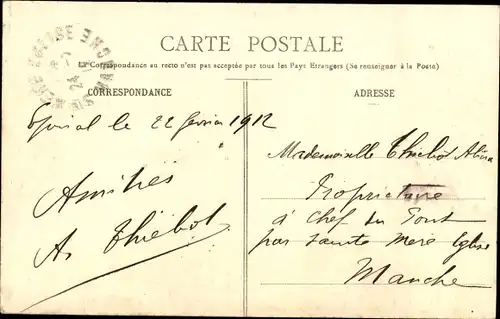 CARTE POSTALE
La Correspondance au recto n'est pas acceptée par tous les Pays Etrangers (Se renseigner à la Poste)
CORRESPONDANCE
ADRESSE
Epinal le 22 février 1912
Amitiés
A. Thiebot
Mademoiselle Thiebot
Propriétaire
à Chef du Pont
par Sainte Mère Eglise
Manche